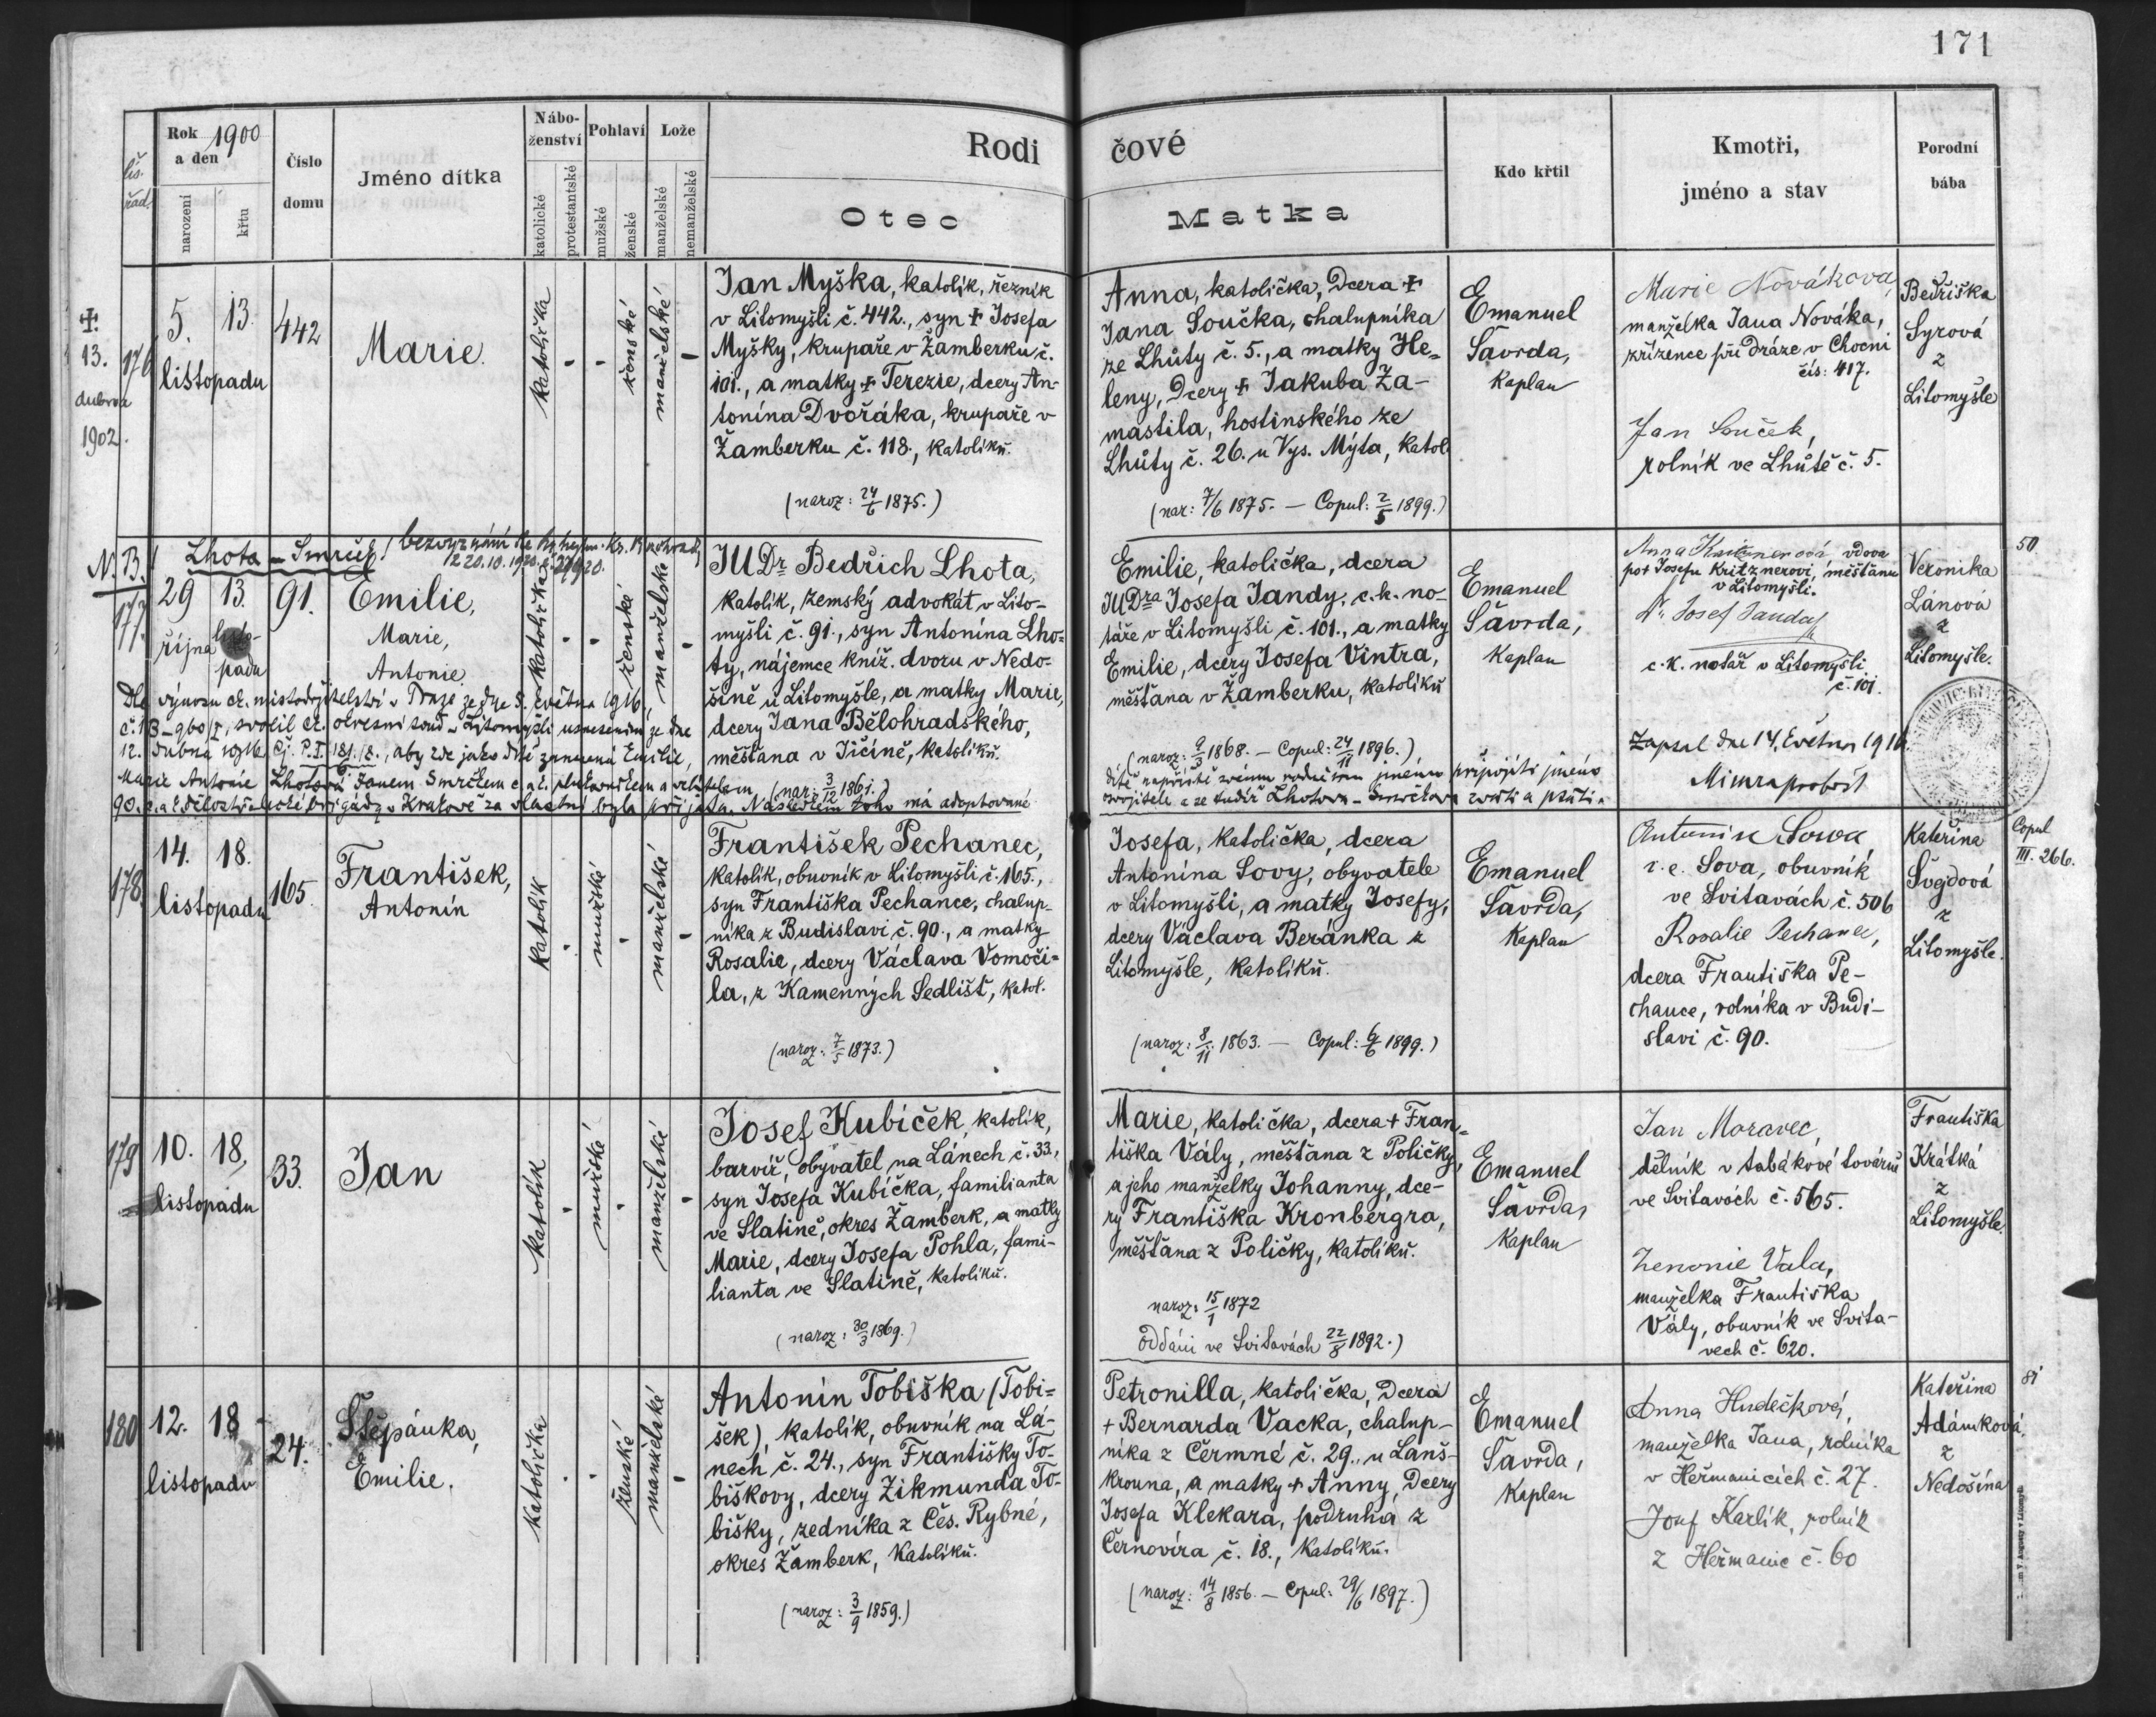 171
Rok 1900
a den
narození
křtu
Číslo
domu
Jméno dítka
Nábo-
ženství
katolické
protestantské
Pohlaví
mužské
ženské
Lože
manželské
nemanželské
Rodi
čové
Otec
Matka
Kdo křtil
Kmotři,
jméno a stav
Porodní
bába
✝.
13.
dubna
1902.
176
5. 13.
listopadu
442
Marie.
katolička
ženské
manželské
Jan Myška, katolík, řezník
v Litomyšli č. 442., syn ✝ Josefa
Myšky, krupaře v Žamberku č.
101., a matky ✝ Terezie, dcery An-
tonína Dvořáka, krupaře v
Žamberku č. 118., katolíků.
(naroz: 24/6 1875.)
Anna, katolička, dcera ✝
Jana Součka, chalupníka
ze Lhůty č. 5., a matky He-
leny, dcery ✝ Jakuba Za-
mastila, hostinského ze
Lhůty č. 26. u Vys. Mýta, katol.
(nar: 7/6 1875. — Copul: 2/5 1899.)
Emanuel
Šavrda,
kaplan
Marie Nováková,
manželka Jana Nováka,
zřízence při dráze v Chocni
čís: 417.
Jan Souček,
rolník ve Lhůtě č. 5.
Bedřiška
Syrová
z
Litomyšle
N. B.! Lhota - Smrček!
177.
29 13.
října listo-
padu
91.
Emilie,
Marie,
Antonie.
katolička
ženské
manželské
JUDr Bedřich Lhota,
katolík, zemský advokát v Lito-
myšli č. 91., syn Antonína Lho-
ty, nájemce kníž. dvoru v Nedo-
šíně u Litomyšle, a matky Marie,
dcery Jana Bělohradského,
měšťana v Jičíně, katolíků.
(nar: 3/12 1861.)
Emilie, katolička, dcera
JUDra Josefa Jandy, c. k. no-
táře v Litomyšli č. 101., a matky
Emilie, dcery Josefa Vintra,
měšťana v Žamberku, katolíků
(naroz: 9/3 1868. — Copul: 24/11 1896.)
Emanuel
Šavrda,
kaplan
Anna Kritznerová vdova
po ✝ Josefu Kritznerovi, měšťanu
v Litomyšli.
Dr. Josef Janda
c. k. notář v Litomyšli
č. 101.
Veronika
Lánová
z
Litomyšle.
50
Dle výnosu ck. místodržitelství v Praze ze dne 5. května 1916,
č. 13 - 960/I, svolil ck. okresní soud v Litomyšli usnesením ze dne
12. dubna 1916 čj. P.I 181/8., aby zde jako dítě zmíněná Emilie,
Marie Antonie Lhotová Janem Smrčkem c. a k. plukovníkem a velitelem
90. c. a k. dělostřelecké brigády v Krakově za vlastní byla přijata. Následkem toho má adoptované
dítě napříště svému rodnému jménu připojiti jméno
osvojitele a se tudíž Lhotova - Smrčkova zvoti a psáti.
Zapsal dne 14. května 1916.
Mimra probošt
178.
14. 18.
listopadu
165.
František,
Antonín
katolík
mužské
manželské
František Pechanec,
katolík, obuvník v Litomyšli č. 165.,
syn Františka Pechance, chalup-
níka z Budislavi č. 90., a matky
Rosalie, dcery Václava Vomoči-
la, z Kamenných Sedlišť, katol.
(naroz: 7/5 1873.)
Josefa, katolička, dcera
Antonína Sovy, obyvatele
v Litomyšli, a matky Josefy,
dcery Václava Beránka z
Litomyšle, katolíků.
(naroz: 8/11 1863. — Copul: 6/6 1899.)
Emanuel
Šavrda,
kaplan
Antonín Sowa
r. e. Sova, obuvník
ve Svitavách č. 506
Rosalie Pechanec,
dcera Františka Pe-
chance, rolníka v Budi-
slavi č. 90.
Kateřina
Švgdová
z
Litomyšle.
Copul
III. 266.
179
10. 18.
listopadu
33.
Jan
katolík
mužské
manželské
Josef Kubíček, katolík,
barvíř, obyvatel na Lánech č. 33.,
syn Josefa Kubíčka, familianta
ve Slatině, okres Žamberk, a matky
Marie, dcery Josefa Pohla, fami-
lianta ve Slatině, katolíků.
(naroz: 30/3 1869.)
Marie, katolička, dcera ✝ Fran-
tiška Vály, měšťana z Poličky,
a jeho manželky Johanny, dce-
ry Františka Kronbergra,
měšťana z Poličky, katolíků.
naroz: 15/1 1872
Oddáni ve Svitavách 22/8 1892.)
Emanuel
Šavrda,
kaplan
Jan Moravec,
dělník v tabákové továrně
ve Svitavách č. 565.
Zenonie Vala,
manželka Františka
Vály, obuvník ve Svita-
vech č. 620.
Františka
Krátká
z
Litomyšle.
180
12. 18
listopadu
24.
Štěpánka,
Emilie.
katolička
ženské
manželské
Antonín Tobiška (Tobi-
šek), katolík, obuvník na Lá-
nech č. 24., syn Františky To-
biškovy, dcery Zikmunda To-
bišky, zedníka z Čes. Rybné,
okres Žamberk, katolíků.
(naroz: 3/9 1859.)
Petronilla, katolička, dcera
✝ Bernarda Vacka, chalup-
níka z Čermné č. 29., u Lanš-
krouna, a matky ✝ Anny, dcery
Josefa Klekara, podruha z
Černovíra č. 18., katolíků.
(naroz: 14/8 1856. — Copul: 29/6 1897.)
Emanuel
Šavrda,
kaplan
Anna Hudečková,
manželka Jana, rolníka
v Heřmanicích č. 27.
Josef Karlík, rolník
z Heřmanic č. 60
Kateřina
Adámková,
z
Nedošína
81